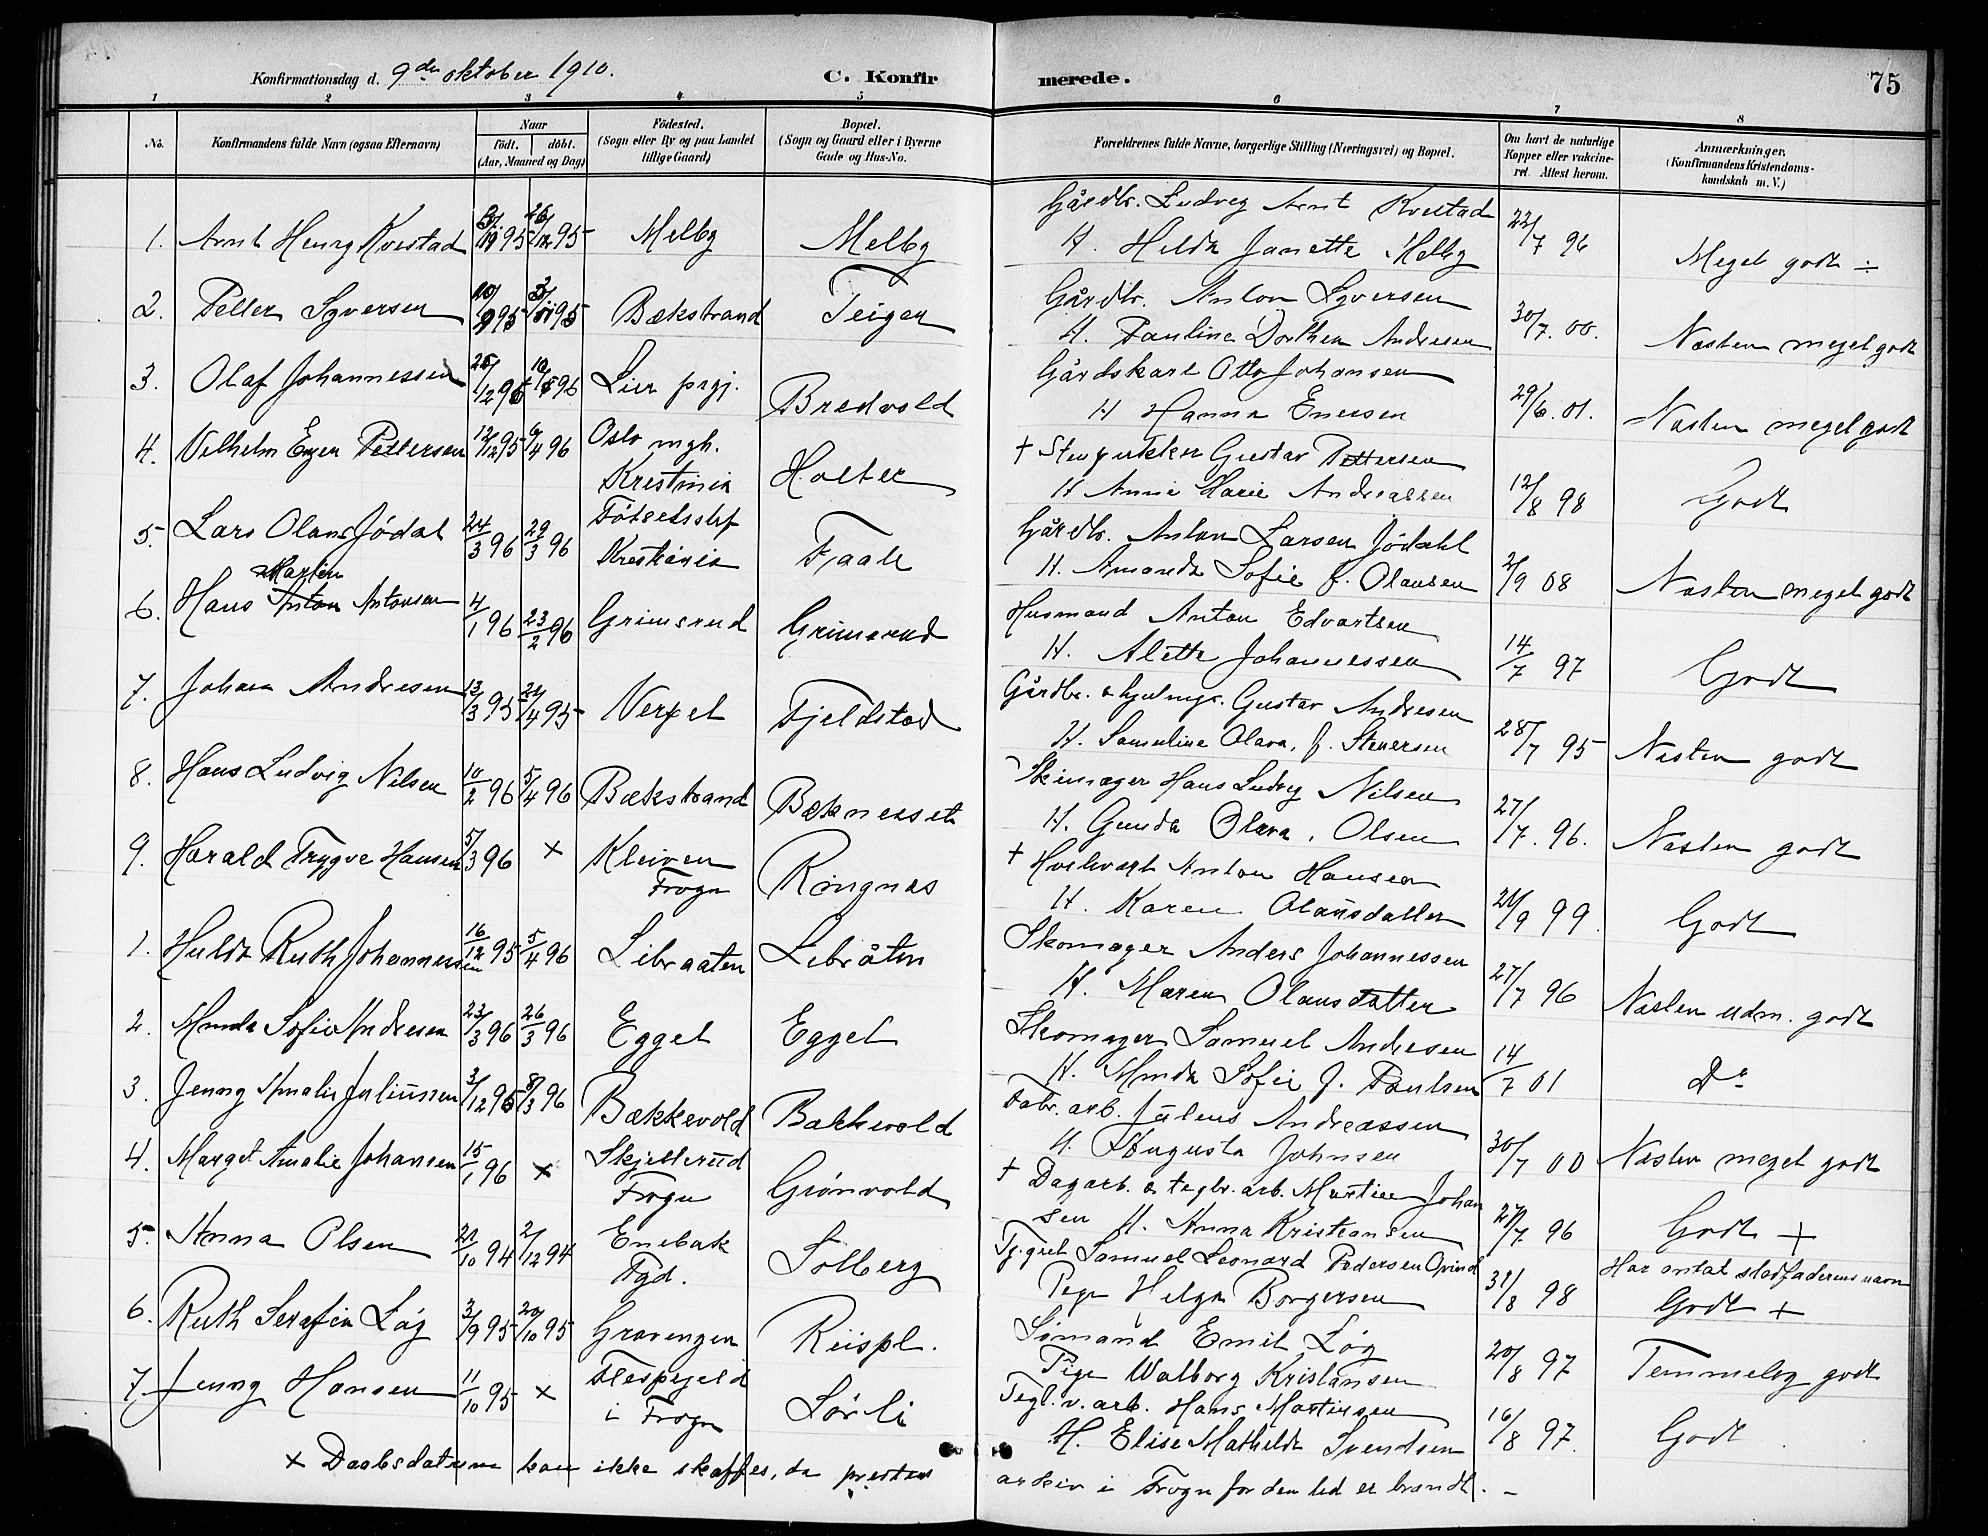 Konfirmationsdag d. 9de oktober 1910. C. Konfirmerede. 75
1 2 3 4 5 6 7 8
No. Konfirmandens fulde Navn (ogsaa Efternavn) Naar født. døbt. (Aar, Maaned og Dag) Fødested. (Sogn eller By og paa Landet tillige Gaard) Bopæl. (Sogn og Gaard eller i Byerne Gade og Hus-No. Forældrenes fulde Navne, borgerlige Stilling (Næringsvei) og Bopæl. Om havt de naturlige Kopper eller vakcineret Attest herom. Anmærkninger, (Konfirmandens Kristendomskundskab m. V.)
1. Arnt Henry Kvestad 95 26/12 95 Melby Melby Gårdbr. Ludvig Arnt Kvestad
H. Hilda Janette Melby 22/7 96 Meget godt ÷
2. Petter Syversen 10/9 95 3/11 95 Bækstrand Teigen Gårdbr. Anton Syversen
H. Pauline Dorthea Andresen 30/7. 00. Næsten meget godt
3. Olaf Johannessen 95 96 Lier prgj. Bredvold Gårdskarl Otto Johansen
H Hanna Enersen 29/6. 01. Næsten meget godt
4. Vilhelm Eger Pettersen 12/12 95 6/4 96 Oslo mgh. Krestinia Holter † Stenpukker Gustav Pettersen
H Anne Marie Andreassen 12/8 98 Godt
5. Lars Olaus Jödal 24/3 96 29/3 96 Fötselsstif Krestiania Faale Gårdbr. Anton Larsen Jödahl
H. Amanda Sofie f. Olausen 2/9 08 Næsten meget godt
Martin
6. Hans Anton Antonsen 4/1 96 23/2 96 Grimsrud Grimsrud Husmand Anton Edvartsen
H. Alette Johannessen 14/7 97 Godt
7. Johan Andresen 13/3 95 21/4 95 Verpet Fjeldstad Gårdbr. & Gustav Andresen
H. Samuline Olava, f. Stenersen 28/7 95 Næsten godt
8. Hans Ludvig Nilsen 10/2 96 5/4 96 Bækstrand Bæknesset Skimager Hans Ludvig Nilsen
H. Gunda Olava, Olsen 27/7. 96. Næsten godt
9. Harald Trygve Hansen 5/3 96 × Kleiven Frogn Ringnes † Anton Hansen
H. Karen Olausdatter 21/9 99 Godt
1. Hulda Ruth Johannessen 16/12 95 5/4 96 Libraaten Libråten Skomager Anders Johannessen
H. Maren Olausdatter 27/7 96 Næsten udm. godt
2. Minda Sofie Andresen 23/3 96 26/3 96 Egget Egget Skomager Samuel Andresen
H. Minda Sofie f. Paulsen 14/7 01 Do
3. Jenny Amalie Juliussen 3/12 95 8/3 96 Bækkevold Bækkevold Fabr. arb. Julius Andreassen
H. Augusta Johnsen 30/7 00 Næsten meget godt
4. Marget Amalie Johansen 15/1 96 × Skjellerud Frogn Grönvold † Dagarb. & teglv. arb. Martin Johan
sen H. Anna Kristiansen 27/7 96 Godt +
5. Anna Olsen 21/10 94 2/12 94 Enebak Fgd. Solberg Samuel Leonard Pedersen Opsand
Pige Helga Borgersen 31/8 98 Har antat stedfaderens navn Godt +
6. Ruth Serafia Löy 3/9 95 20/10 95 Gravengen Riispl. Sömand Emil Löy
Pige Walborg Kristansen 20/8 97 Temmelig godt
7. Jenny Hansen 11/10 95 × Flespjeld i Frogn Sörli Tegl. v. arb. Hans Martinsen
H. Elise Mathilde Svendsen 16/8 97. Godt
× Daabsdatum kan ikke skaffes, da prestens arkiv i Frogn for den tid er brændt. –